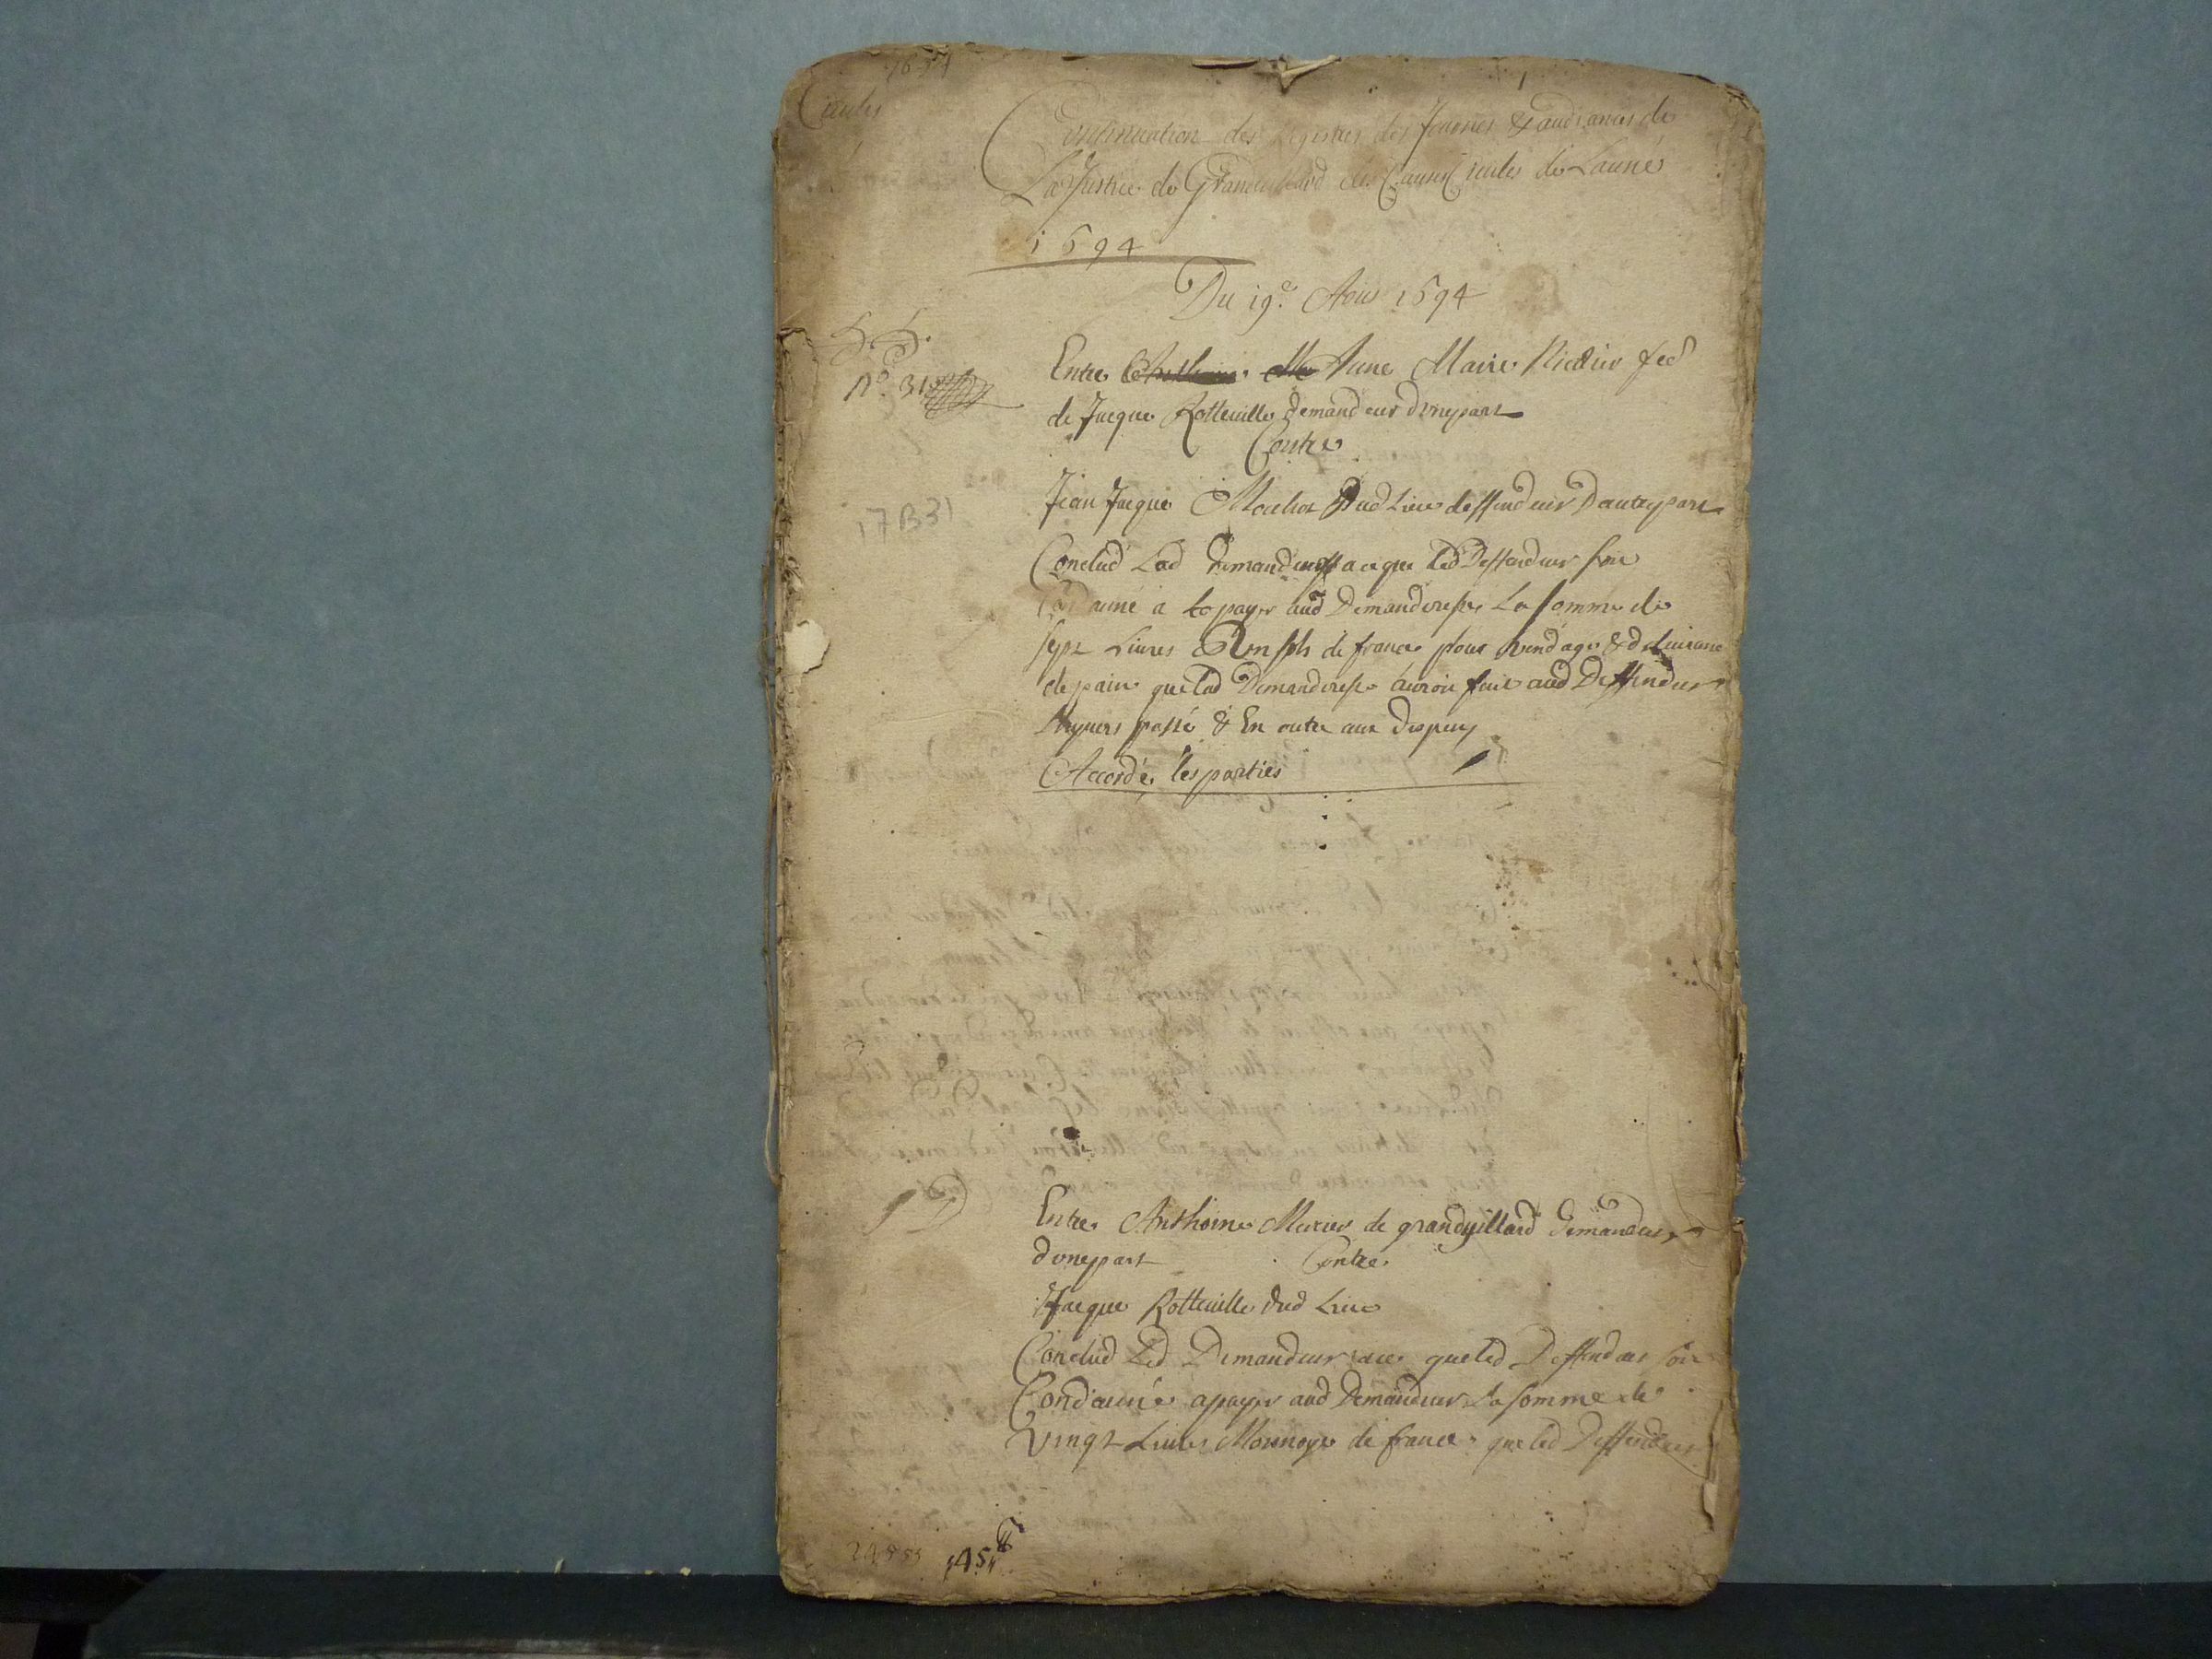 1694
Ciuiles
Continuation des Registres des Journées & audiances de
La Justice de Grandvillard des Causes Ciuiles de Lannée
1694
Du 19.e Aous 1694
N.o 31
Entre Anne Marie
de Jacque Rotteuille demandeur dvnepart
Contre
17 B 31
Jean Jacque dud Lieu deffendeur Dautrepart
Conclud Lad demanderesse a ce que led Deffendeur soit
Condamné a payer aud Demanderesse La somme de
sept Liures & Un sols de france pour vendage & deliurance
de pain que lad Demanderesse auroit fait aud Deffendeur
passé & En outre aux despens
Accordé les parties
D
Entre Anthoine Monier de grandvillard demandeur
dvnepart Contre
Jacque Rotteuille dud Lieu
Conclud Led Demandeur a ce que led Deffendeur soit
Condamné a payer aud Demandeur La somme de
vingt Liures Monnoye de france que led Deffendeur